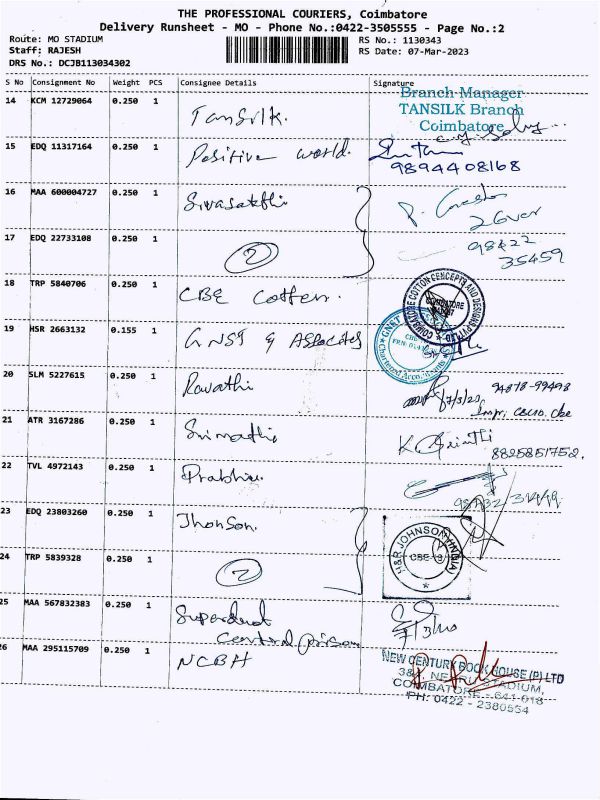 THE PROFESSIONAL COURIERS, Coimbatore
Delivery Runsheet - MO - Phone No.:0422-3505555 - Page No.:2
Route: MO STADIUM
Staff: RAJESH
DRS No.: DCJB113034302
RS No.: 1130343
RS Date: 07-Mar-2023
S No Consignment No Weight PCS Consignee Details Signature
14 KCM 12729064 0.250 1 Tansilk.
Branch Manager
TANSILK Branch
Coimbatore
15 EDQ 11317164 0.250 1 Positive world.
9894408168
16 MAA 600004727 0.250 1 Sivasakthi
17 EDQ 22733108 0.250 1 2
98422
35459
18 TRP 5840706 0.250 1 CBE Cotten.
COIMBATORE COTTON CONCEPTS AND DESIGNS PVT LTD
19 HSR 2663132 0.155 1 GNSJ & Associates
Chartered Accountants
20 SLM 5227615 0.250 1 Revathi
94878-99498
7/3/23
21 ATR 3167286 0.250 1 Srimathi
8825851752.
22 TVL 4972143 0.250 1 Prabhu.
23 EDQ 23803260 0.250 1 Jhonson.
H&R JOHNSON (INDIA)
24 TRP 5839328 0.250 1 2
25 MAA 567832383 0.250 1 Superdent
Central prison
26 MAA 295115709 0.250 1 NCBH
NEW CENTURY BOOK HOUSE (P) LTD
NEHRU STADIUM,
COIMBATORE - 641 018
PH: 0422 - 2380554